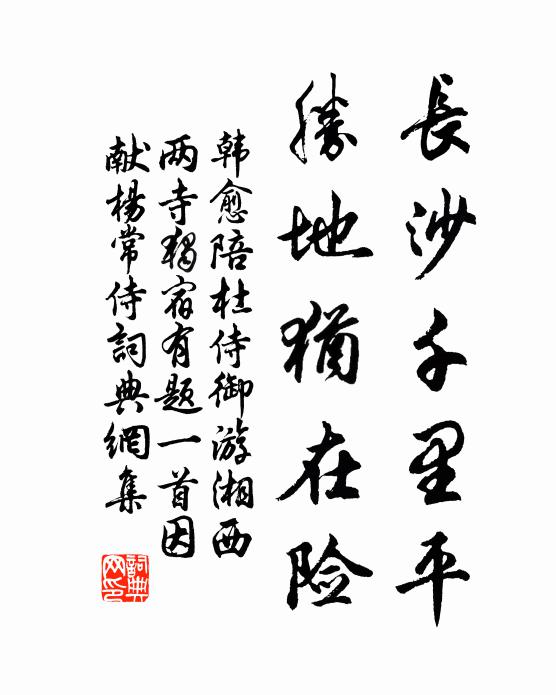 長沙千里平
勝地猶在险
韩愈陪杜侍御游湘西
两寺獨宿有题一首因
献楊常侍詞典網集
詞典
网印